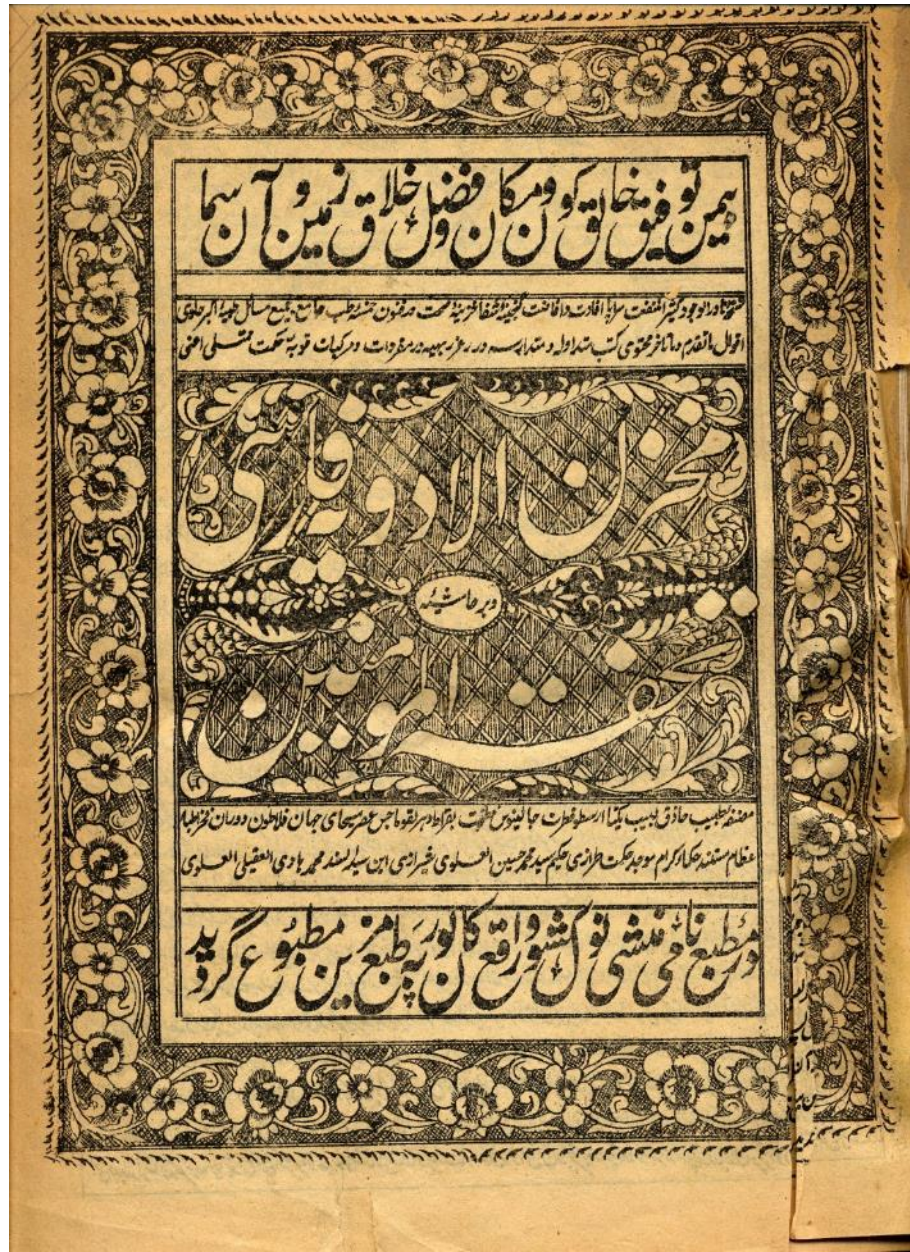 بیمن توفیق خالق کون و مکان و فضل خلاق زمین و آسمان
نادر الوجود کثیر المنفعت سراپا افادت و افاضت گنجینه شفا خزینه صحت صد فنون طب جامع جمیع مسائل طبیه اکبر حاوی
اقوال ما تقدم و ما تاخر محتوی کتب متداوله و متدارسه در مفردات و مرکبات قویه حکمت
مخزن الادویه فارسی
و بر حاشیه
تحفة المومنین
مصنفه طبیب حاذق لبیب یکتا ارسطو فطرت جالینوس بقراط دهر بقوماجس عصر مسیحای جهان فلاطون دوران فخر اطبا
عظام مستند حکماء کرام موجد حکمت طرازی حکیم سید محمد حسین العلوی شیرازی ابن سید السند محمد هادی العقیلی العلوی
در مطبع نامی منشی نول کشور واقع کانپور به طبع مزین مطبوع گردید